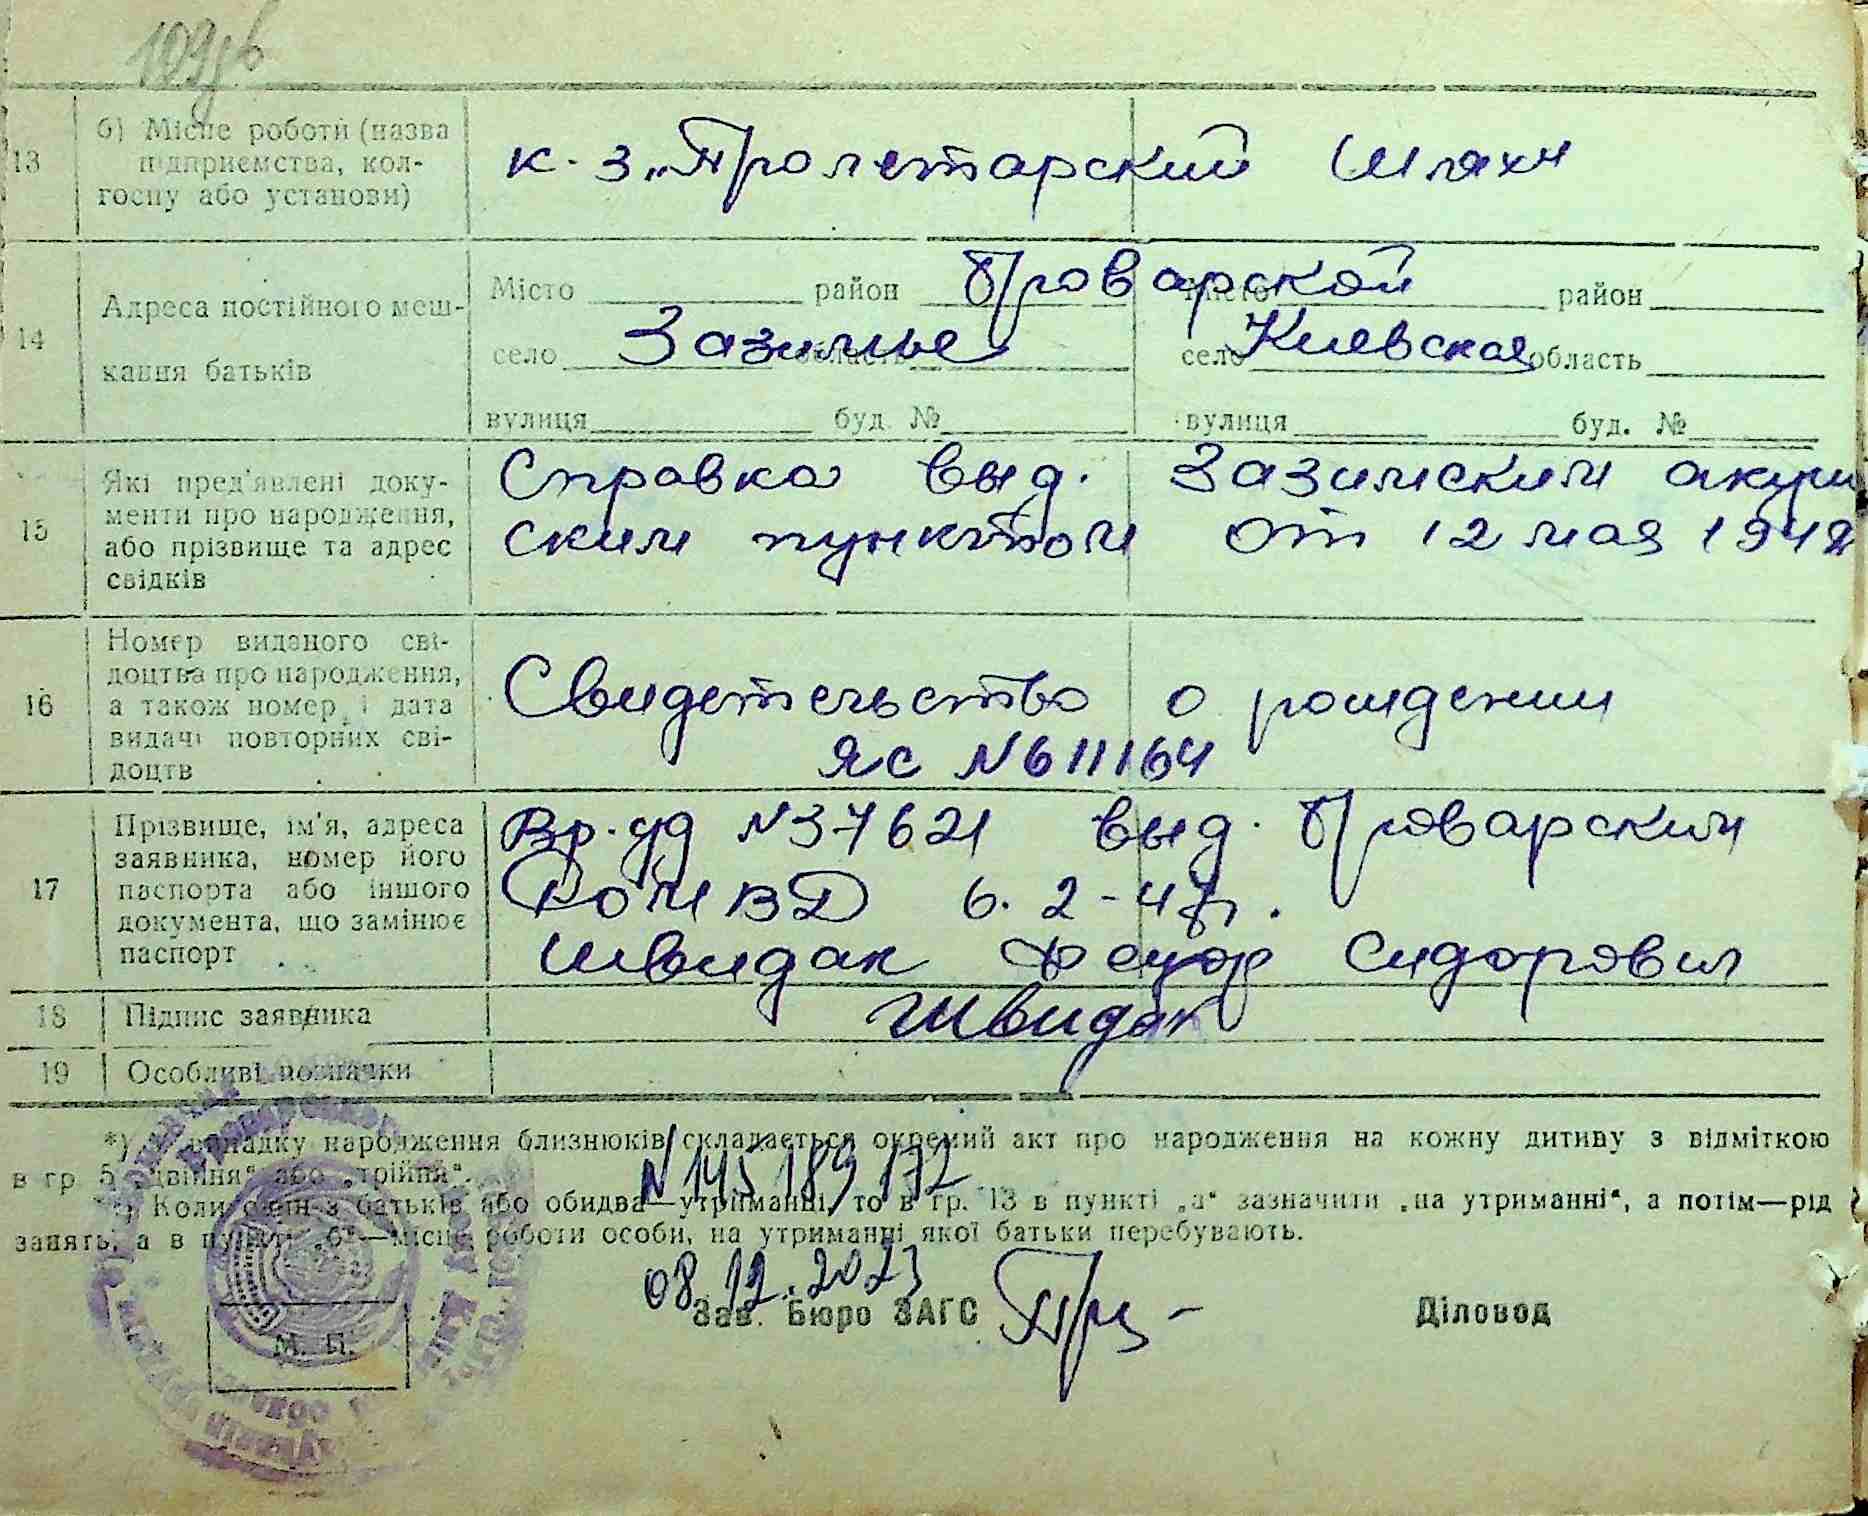 109зв
13 б) Місце роботи (назва
підприємства, кол-
госпу або установи)
к-з „Пролетарский Шлях"
14 Адреса постійного меш-
кання батьків
Місто район Броварской Місто район
село Зазимье область село Киевская область
вулиця буд. № вулиця буд. №
15 Які пред'явлені доку-
менти про народження,
або прізвище та адрес
свідків
Справка выд. Зазимским акуш
ским пунктом от 12 мая 1948
16 Номер виданого сві-
доцтва про народження,
а також номер і дата
видачі повторних сві-
доцтв
Свидетельство о рождении
ЯС N 611164
17 Прізвище, ім'я, адреса
заявника, номер його
паспорта або іншого
документа, що замінює
паспорт
Вр. уд N 37621 выд. Броварским
РОМВД 6. 2-47г.
Швидак Федор Сидорович
18 Підпис заявника
Швидак
19 Особливі позначки
*) У випадку народження близнюків складається окремий акт про народження на кожну дитину з відміткою
в гр 5 „двійня" або „трійня".
Коли один з батьків або обидва—утриманні, то в гр. 13 в пункті „а" зазначити „на утриманні", а потім—рід
занять, а в пункті „б"—місце роботи особи, на утриманні якої батьки перебувають.
N 145 189 172
08.12.2023
Зав. Бюро ЗАГС
Діловод
М. П.